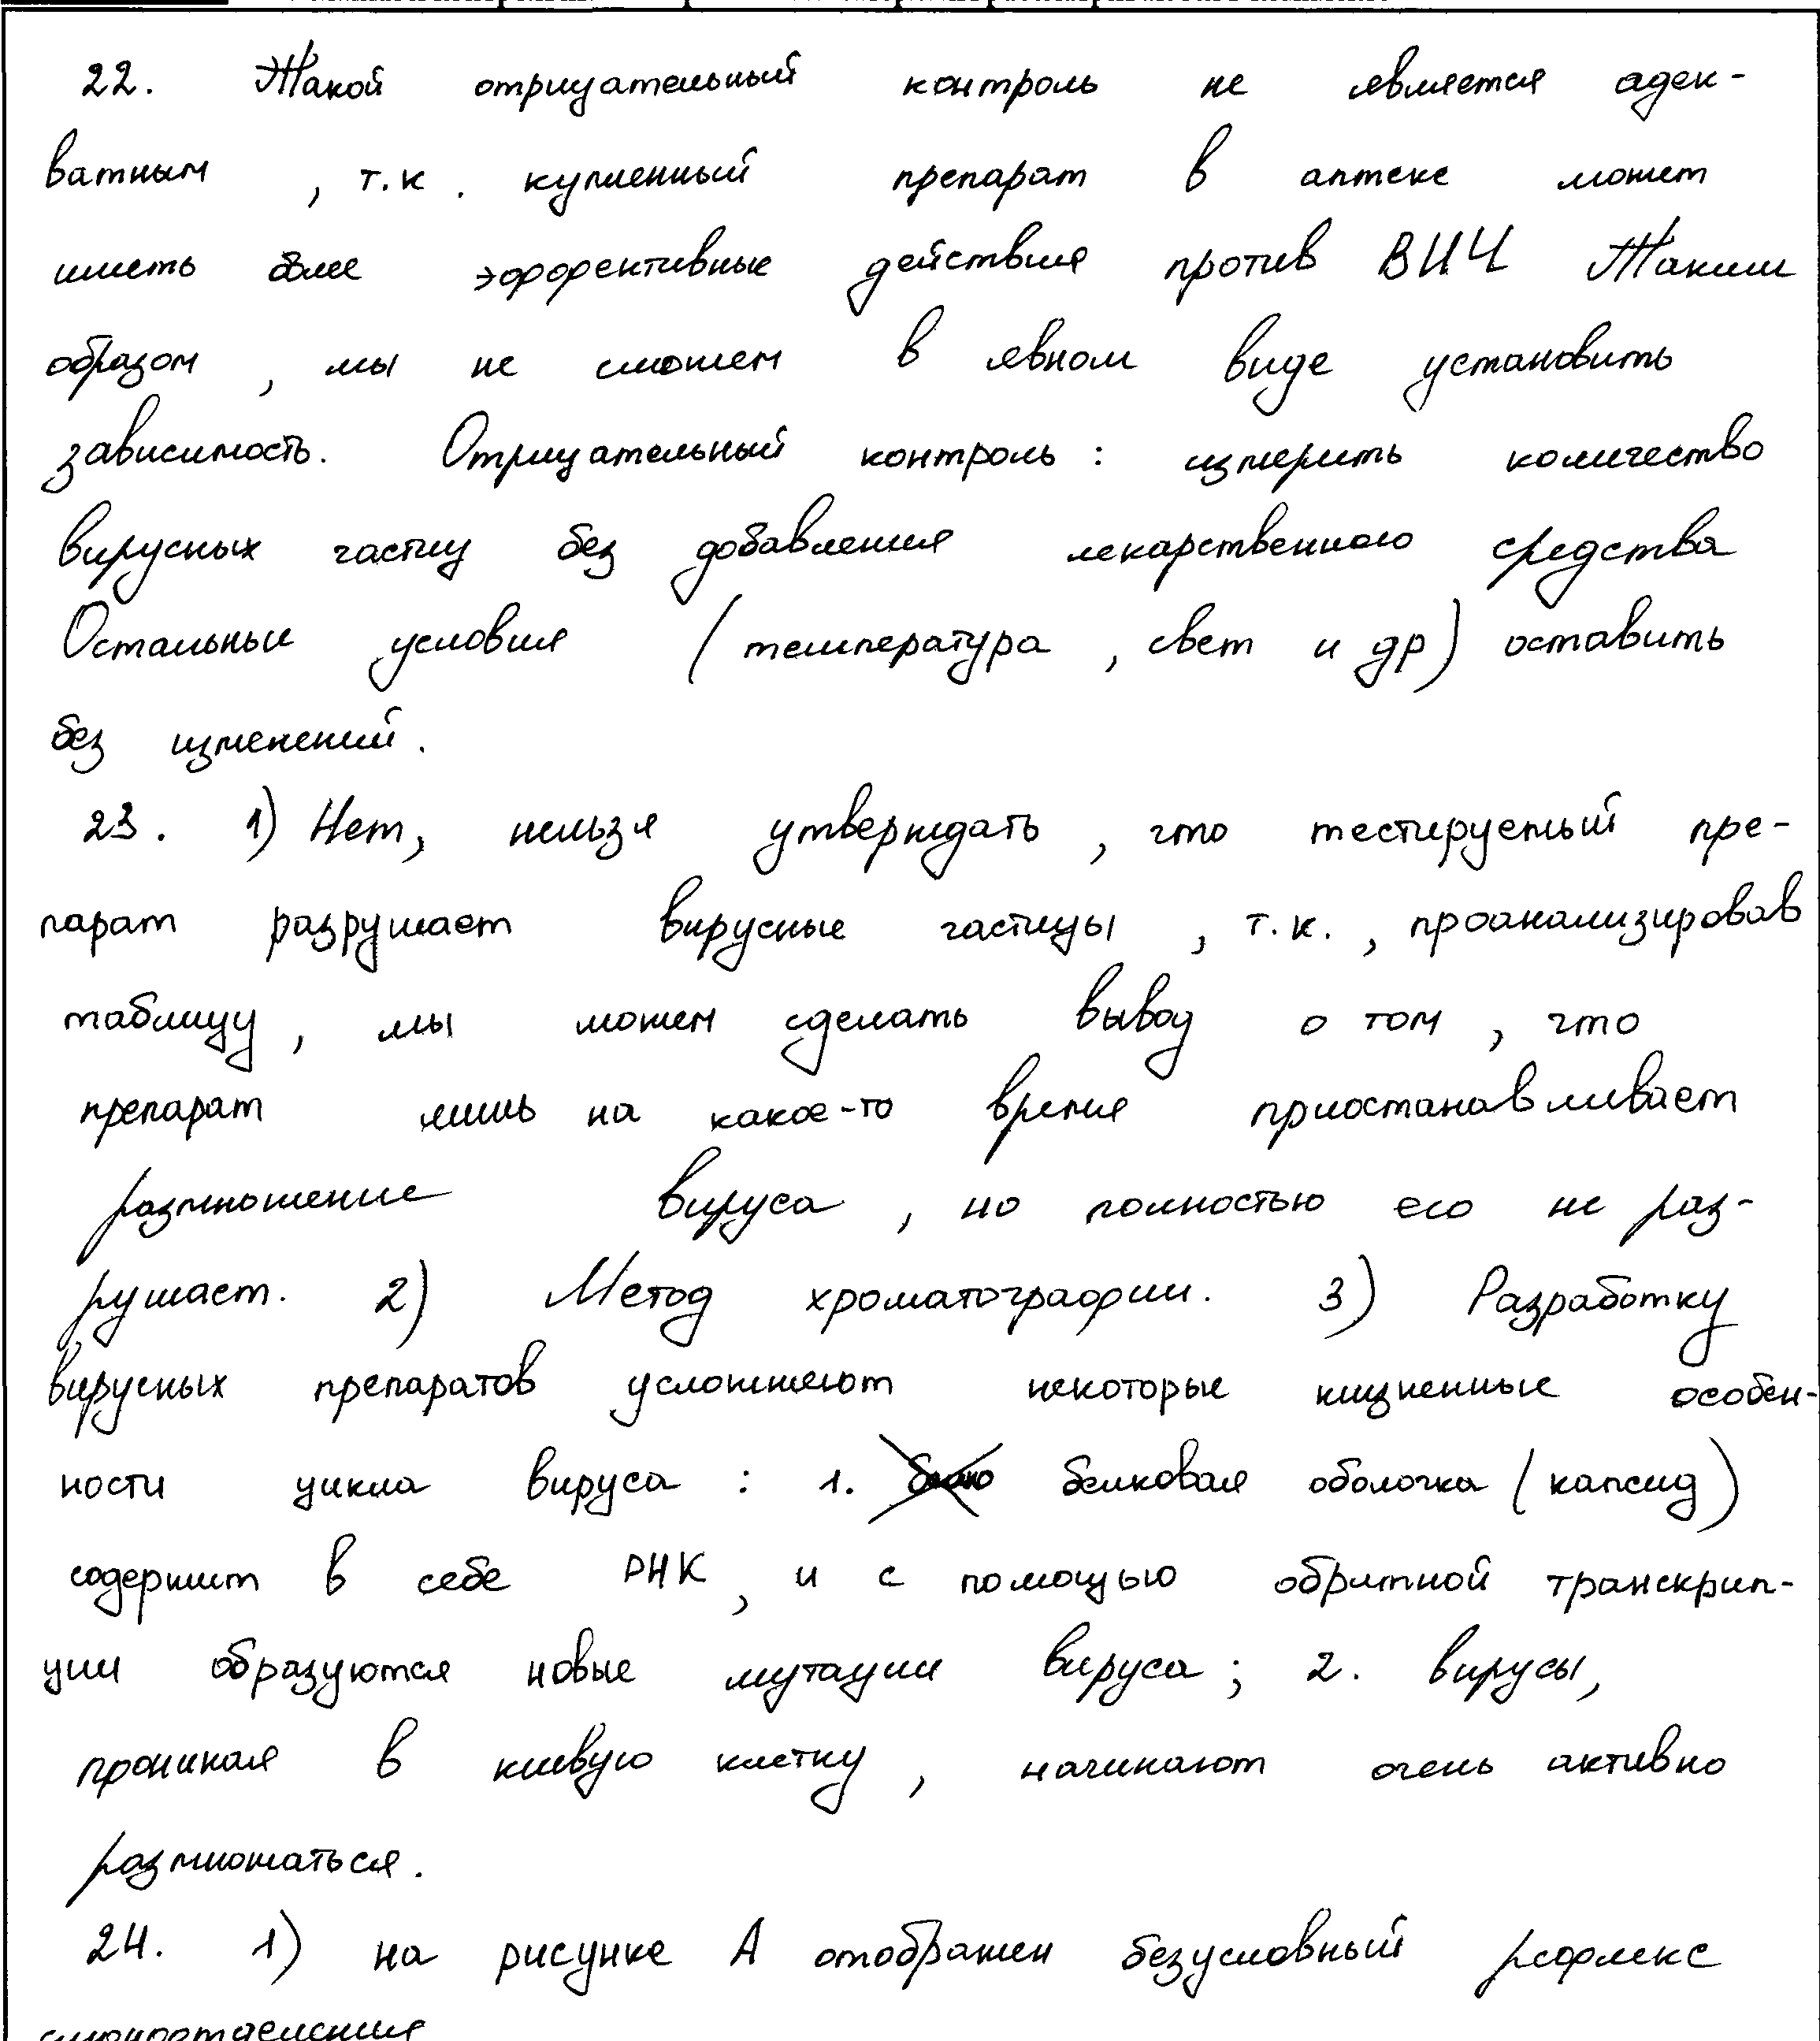 22. Такой отрицательный контроль не является адек-
ватным, т.к. купленный препарат в аптеке может
иметь более эффективные действия против ВИЧ Таким
образом, мы не сможем в явном виде установить
зависимость. Отрицательный контроль: измерить количество
вирусных частиц без добавления лекарственного средства
Остальные условия (температура, свет и др) оставить
без изменений.
23. 1) Нет, нельзя утверждать, что тестируемый пре-
парат разрушает вирусные частицы, т.к., проанализировав
таблицу, мы можем сделать вывод о том, что
препарат лишь на какое-то время приостанавливает
размножение вируса, но полностью его не раз-
рушает. 2) Метод хроматографии. 3) Разработку
вирусных препаратов усложняют некоторые жизненные особен-
ности цикла вируса: 1. белковая оболочка (капсид)
содержит в себе РНК, и с помощью обратной транскрип-
ции образуются новые мутации вируса; 2. вирусы,
проникая в живую клетку, начинают очень активно
размножаться.
24. 1) на рисунке А отображен безусловный рефлекс
слюноотделения